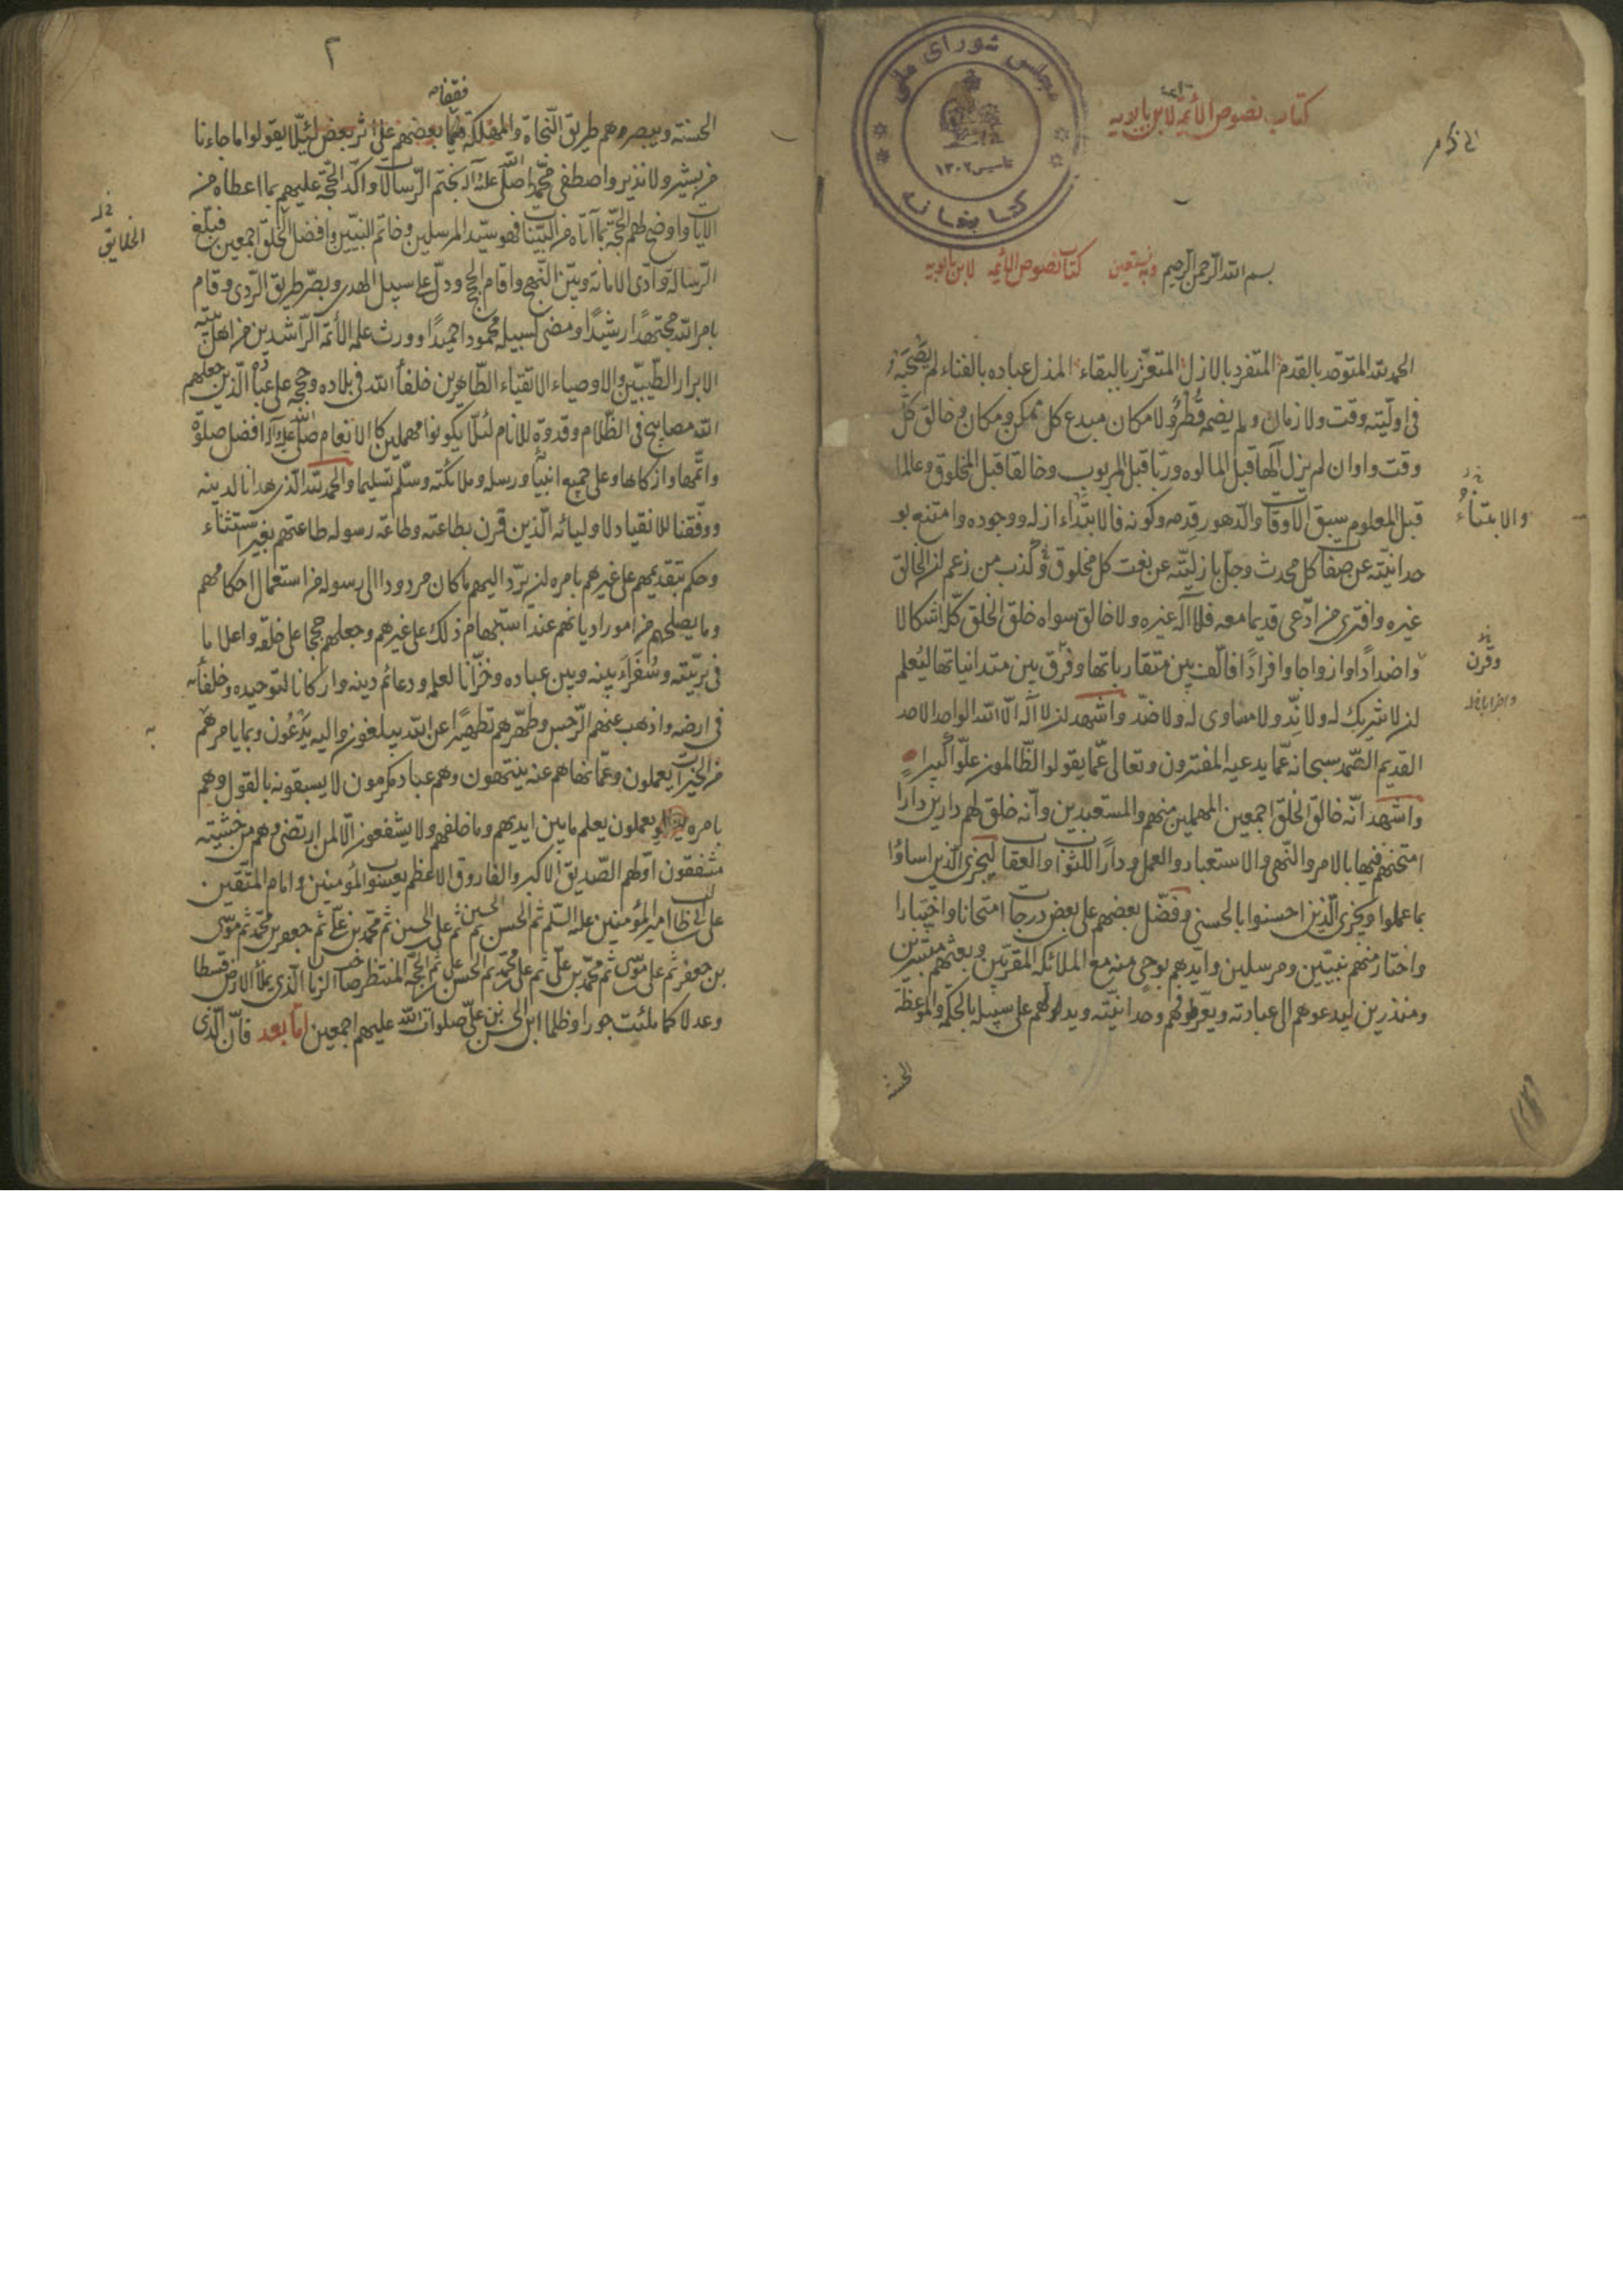 كتاب نصوص الأئمة لابن بابويه
مجلس شورای ملی
تاسیس ۱۳۰۲
کتابخانه
بسم الله الرحمن الرحيم وبه نستعين كتاب نصوص الأئمه لابن بابويه
الحمد لله المتوحّد بالقدم المتفرد بالازل المتعزّز بالبقاء المذل عباده بالفناء لم يصحبه
فى اوليّته وقت ولا زمان ولم يضمه قُطْرٌ ولا مكان مبدع كل ممكن ومكان وخالق كلّ
وقت واوان لم يزل الٰها قبل المالوه وربّا قبل المربوب وخالقا قبل المخلوق وعالما
قبل المعلوم سبق الاوقات والدّهور قِدمه وكونه فالابتداء ازله ووجوده وامتنع بو
والابتداءُ
حدانيّته عن صفات كل محدث وجلّ بازليّته عن نعت كل مخلوق وكذب من زعم ان الخالق
غيره وافترى من ادّعى قديما معه فلا اله غيره ولا خالق سواه خلق الخلق كلّه اشكالا
واضداداً وازواجا وافراداً فالّف بين متقارباتها وفرّق بين متدانياتها ليُعلم
وقرن
ان لا شريك له ولا نِدّ ولا مساوى له ولا ضدّ واشهد ان لا اله الّا الله الواحد الاحد
القديم الصّمد سبحانه عمّا يدعيه المفترون وتعالى عمّا يقولوا الظّالمون علوّا كبيرا
واشهد انّه خالق الخلق اجمعين المهملين منهم والمستعبدين وانّه خلق لهم دارين دارًا
امتحنهم فيها بالامر والنّهى والاستعباد والعمل ودارًا للثواب والعقاب ليجزى الّذين اساؤا
بما عملوا ويجزى الّذين احسنوا بالحسنى وفضّل بعضهم على بعض درجات امتحانا واختبارا
واختار منهم نبيّين ومرسلين وايّدهم بوحى منه مع الملائكه المقرّبين وبعثهم مبشّرين
ومنذرين ليدعوهم الى عبادته ويعرّفوهم وحدانيّته ويدلوهم على سبيله بالحكمة والموعظة
الحسنه
٢
الحسنة ويبصروهم طريق النّجاة والمهلكة فقفّا بعضهم على اثر بعض لئيلّا يقولوا ما جاءنا
من بشير ولا نذير واصطفى محمّدا صلى الله عليه وآله بختم الرّسالات واكّد الحجّة عليهم بما اعطاه من
الايات واوضح لهم الحجّة بما آتاه من البيّنات فهو سيّد المرسلين وخاتم النبيّين وافضل الخلق اجمعين فبلّغ
الخلايق
الرّسالة وادّى الامانة وبيّن النّهج واقام الحجج ودلّ على سبيل الهدى وبصّر طريق الرّدى وقام
بامر الله مجتهدًا رشيدًا ومضى لسبيله محمودا حميدًا وورث علمه الأئمّة الرّاشدين من اهل بيته
الابرار الطّيبين والاوصياء الاتقياء الطّاهرين خلفاء الله فى بلاده وحججه على عباده الّذين جعلهم
الله مصابيح فى الظّلام وقدوة للانام لئلّا يكونوا مهملين كالانعام صلى الله عليه وآله افضل صلوة
واتمّها وازكاها وعلى جميع انبيائه ورسله وملائكته وسلّم تسليما والحمد لله الّذى هدانا لدينه
ووفّقنا للانقياد لاوليائه الّذين قرن بطاعته وطاعة رسوله طاعتهم بغير استثناء
وحكم بتقديمهم على غيرهم بامره ان يردّ اليهم ما كان مردودا الى رسوله من استعمال احكامهم
وما يصلحهم من امور اديانهم عند استبهام ذلك على غيرهم وجعلهم حججا على خلقه واعلاما
فى بريّته وسُفَراءَ بينه وبين عباده وخزّانا لعلمه ودعائم دينه واركانا لتوحيده وخلفائه
فى ارضه واذهب عنهم الرّجس وطهّرهم تطهيرا عن الله يبلغون واليه يدعُون وبما يامرهم
من الخيرات يعملون وعمّا نهاهم عنه ينتهون وهم عباد مكرمون لا يسبقونه بالقول وهم
بامره يعملون يعلم ما بين ايديهم وما خلفهم ولا يشفعون الّا لمن ارتضى وهم من خشيته
مشفقون اوّلهم الصّديق الاكبر والفاروق الاعظم يعسوب المؤمنين وامام المتّقين
على بن ابى طالب امير المؤمنين عليه السّلم ثم الحسن ثم الحسين ثم على بن الحسين ثم محمّد بن علىّ ثم جعفر بن محمّد ثم موسى
بن جعفر ثم على بن موسى ثم محمّد بن علّى ثم على بن محمّد ثم الحسن بن على ثم الحجّة المنتظر صاحب الزمان الّذى يملأ الارض قسطا
وعدلا كما ملئت جورا وظلما ابن الحسن بن علىّ صلوات الله عليهم اجمعين امّا بعد فانّ الّذى